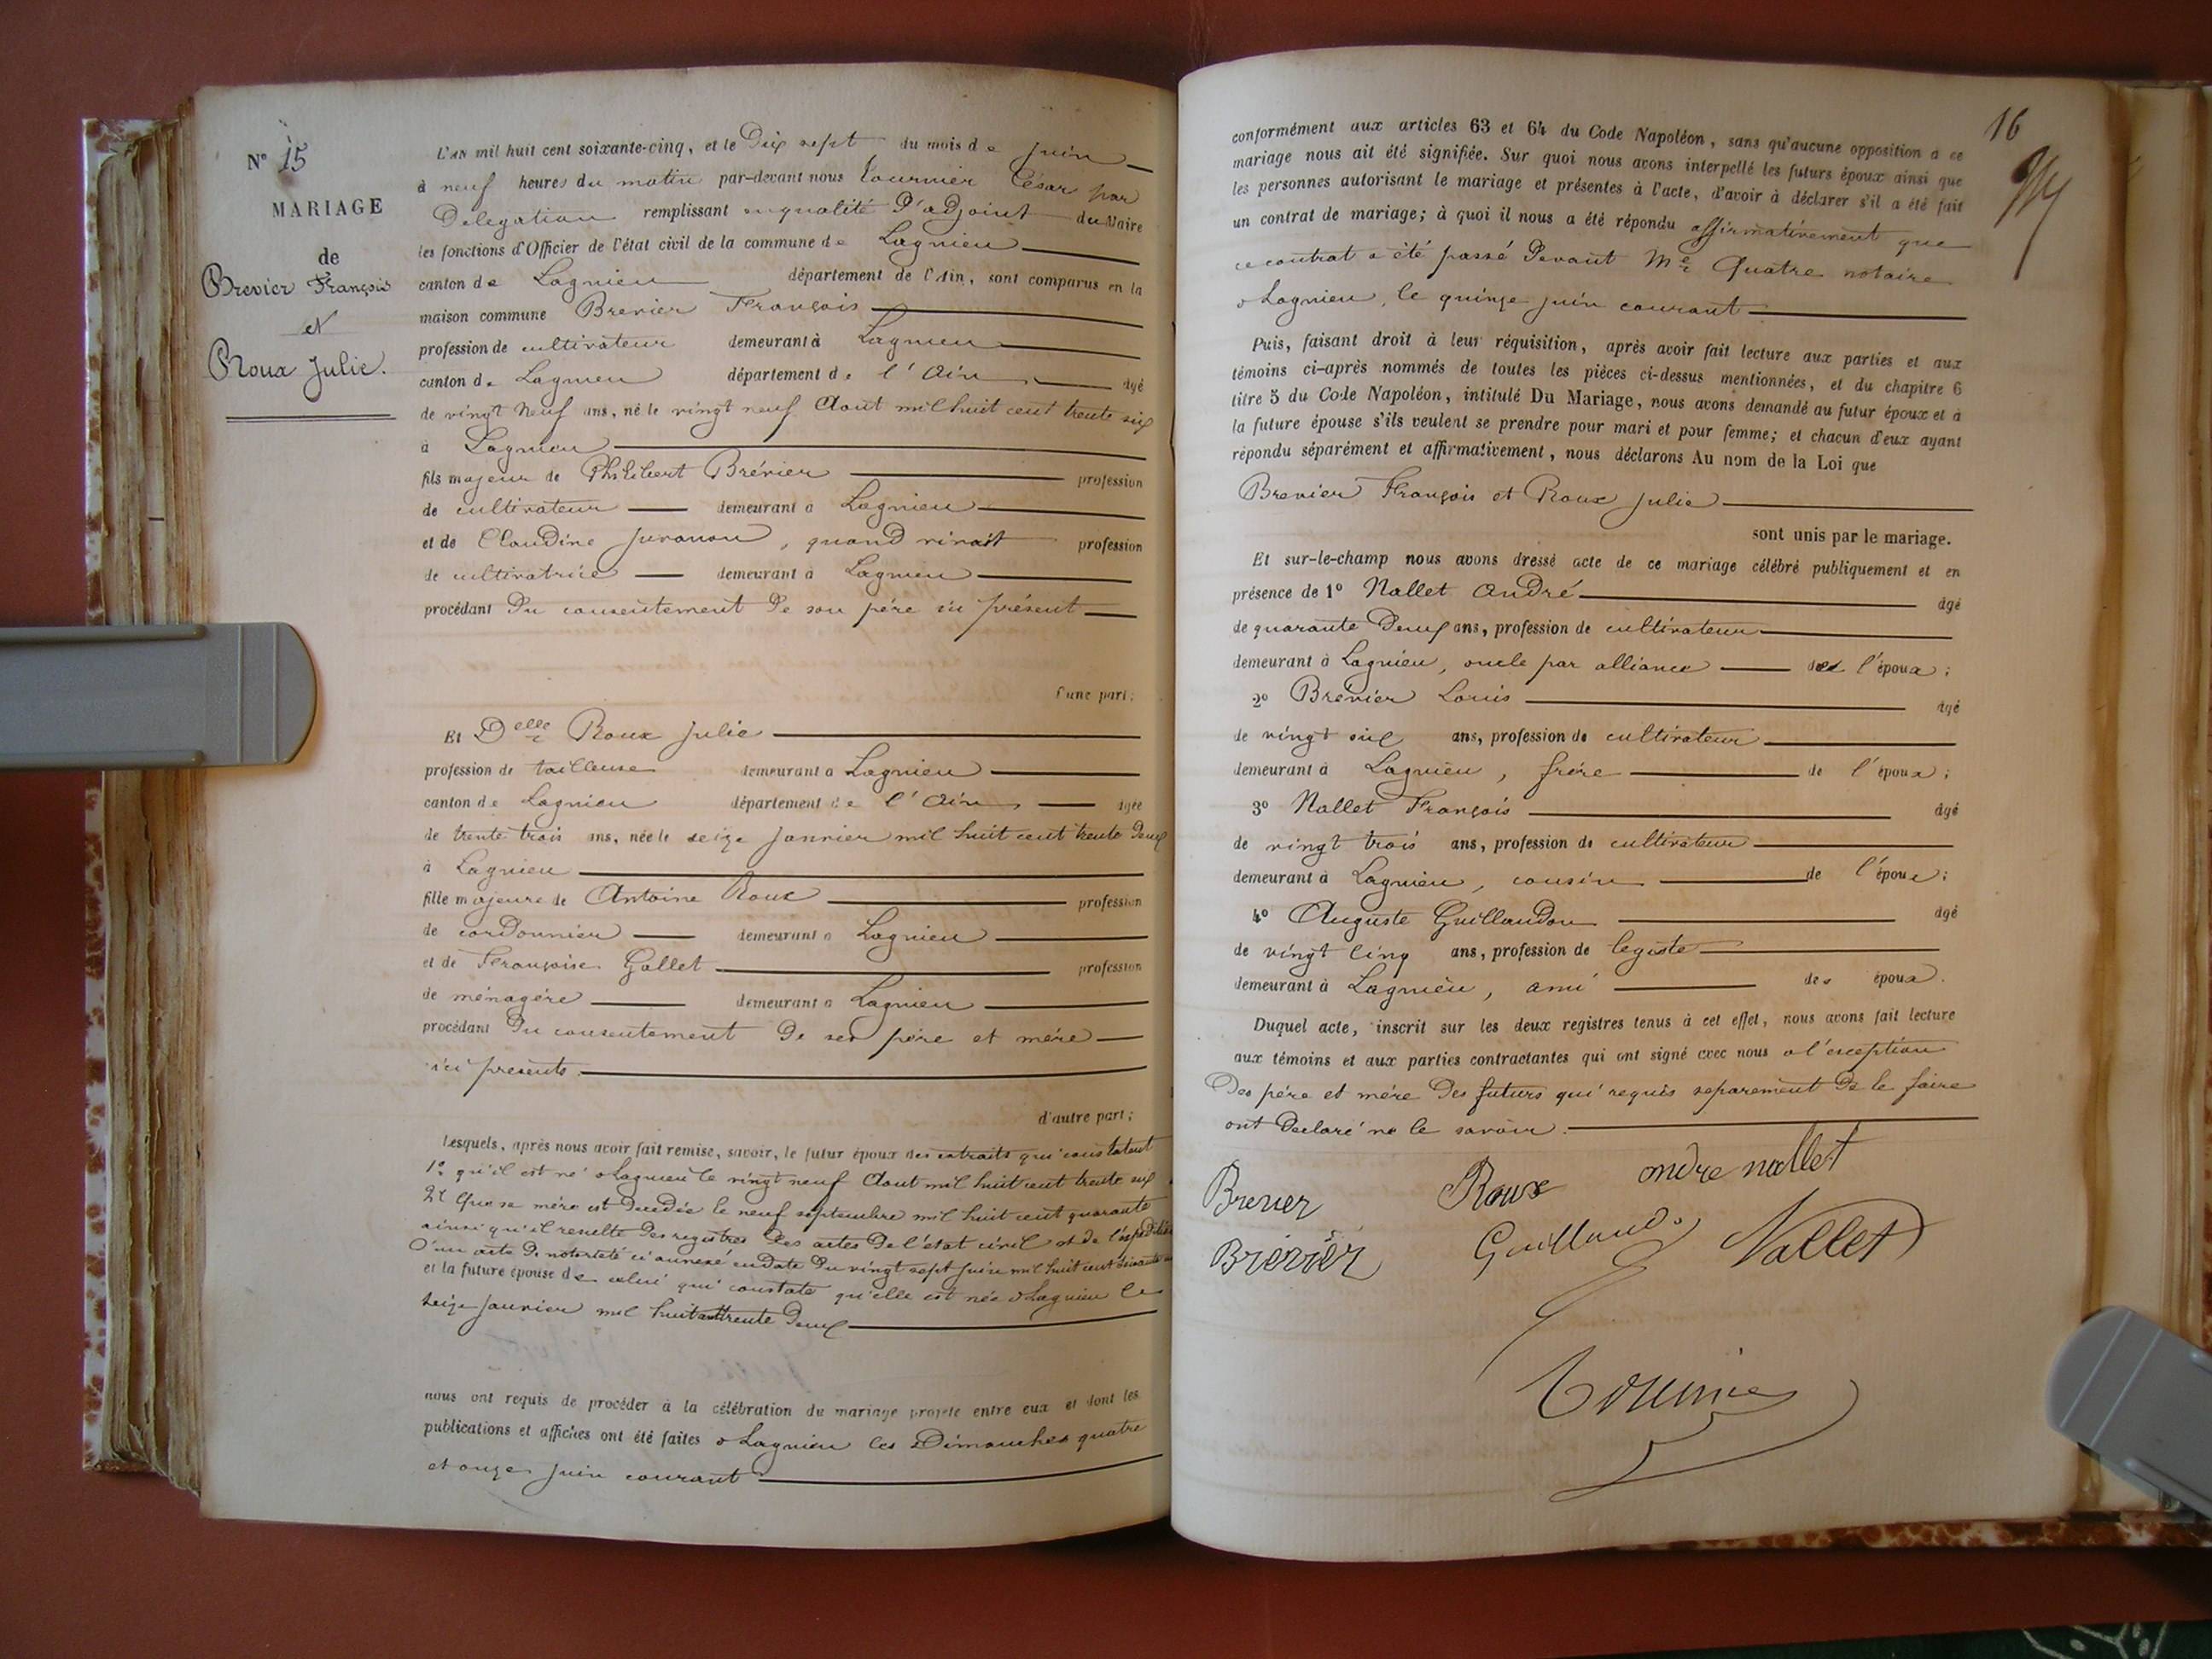 N° 15
MARIAGE
de
Brevier François
et
Roux Julie.
L'AN mil huit cent soixante-cinq, et le Dix sept du mois de Juin
à neuf heures du matin par-devant nous Tournier César par
Délégation remplissant en qualité d'adjoint du Maire
les fonctions d'Officier de l'état civil de la commune de Lagnieu
canton de Lagnieu département de l'Ain, sont comparus en la
maison commune Brevier François
profession de cultivateur demeurant à Lagnieu
canton de Lagnieu département de l'Ain, âgé
de vingt neuf ans, né le vingt neuf Aout mil huit cent trente six
à Lagnieu
fils majeur de Philibert Brévier profession
de cultivateur demeurant à Lagnieu
et de Claudine Juvanon, quand vivait profession
de cultivatrice demeurant à Lagnieu
procédant du consentement de son père ici présent
d'une part;
Et Delle Roux Julie
profession de tailleuse demeurant à Lagnieu
canton de Lagnieu département de l'Ain, âgée
de trente trois ans, née le seize Janvier mil huit cent trente deux
à Lagnieu
fille majeure de Antoine Roux profession
de cordonnier demeurant à Lagnieu
et de Françoise Gallet profession
de ménagère demeurant à Lagnieu
procédant du consentement de ses père et mère
ici présents.
d'autre part;
Lesquels, après nous avoir fait remise, savoir, le futur époux des extraits qui constatent
1° qu'il est né à Lagnieu le vingt neuf Aout mil huit cent trente six
2° Que sa mère est décédée le neuf septembre mil huit cent quarante
ainsi qu'il resulte des registres des actes de l'état civil et de l'expédition
d'un acte de notorieté ci annexé en date du vingt sept juin mil huit cent soixante
et la future épouse de celui qui constate qu'elle est née à Lagnieu le
seize Janvier mil huit cent trente deux
nous ont requis de procéder à la célébration du mariage projeté entre eux et dont les
publications et affiches ont été faites à Lagnieu les Dimanches quatre
et onze Juin courant
16
conformément aux articles 63 et 64 du Code Napoléon, sans qu'aucune opposition à ce
mariage nous ait été signifiée. Sur quoi nous avons interpellé les futurs époux ainsi que
les personnes autorisant le mariage et présentes à l'acte, d'avoir à déclarer s'il a été fait
un contrat de mariage; à quoi il nous a été répondu affirmativement que
ce contrat a été passé devant Me Quatre notaire
à Lagnieu, le quinze juin courant
Puis, faisant droit à leur réquisition, après avoir fait lecture aux parties et aux
témoins ci-après nommés de toutes les pièces ci-dessus mentionnées, et du chapitre 6
titre 5 du Code Napoléon, intitulé Du Mariage, nous avons demandé au futur époux et à
la future épouse s'ils veulent se prendre pour mari et pour femme; et chacun d'eux ayant
répondu séparément et affirmativement, nous déclarons Au nom de la Loi que
Brevier François et Roux Julie
sont unis par le mariage.
Et sur-le-champ nous avons dressé acte de ce mariage célébré publiquement et en
présence de 1° Nallet André âgé
de quarante Deux ans, profession de cultivateur
demeurant à Lagnieu, oncle par alliance de l'époux;
2° Brévier Louis âgé
de vingt six ans, profession de cultivateur
demeurant à Lagnieu, frère de l'époux;
3° Nallet François âgé
de vingt trois ans, profession de cultivateur
demeurant à Lagnieu, cousin de l'époux;
4° Auguste Guillaudon âgé
de vingt cinq ans, profession de legiste
demeurant à Lagnieu, ami des époux.
Duquel acte, inscrit sur les deux registres tenus à cet effet, nous avons fait lecture
aux témoins et aux parties contractantes qui ont signé avec nous à l'exception
Des père et mère des futurs qui requis separement de le faire
ont declaré ne le savoir.
Brevier Roux andre nallet
Brévier Guillaud Nallet
Tournier